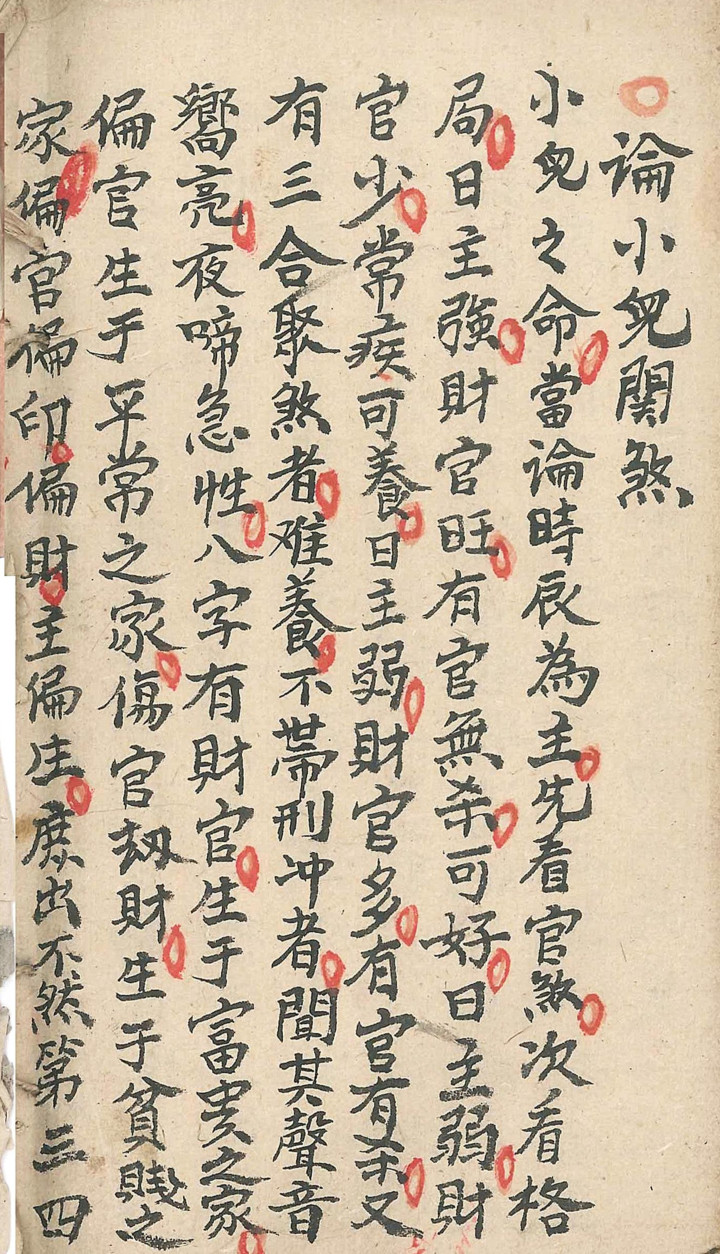 論小兒関煞
小兒之命當論時辰為主先看官煞次看格
局日主強財官旺有官無杀可好日主弱財
官少常疾可養日主弱財官多有官有杀又
有三合聚煞者难養不帯刑冲者聞其聲音
嚮亮夜啼急性八字有財官生于富贵之家
偏官生于平常之家傷官劫財生于貧賤之
家偏官偏印偏財主偏生庶出不然第三四